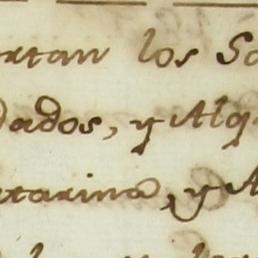 rtan los So
dados, y Alq
tarina, y A